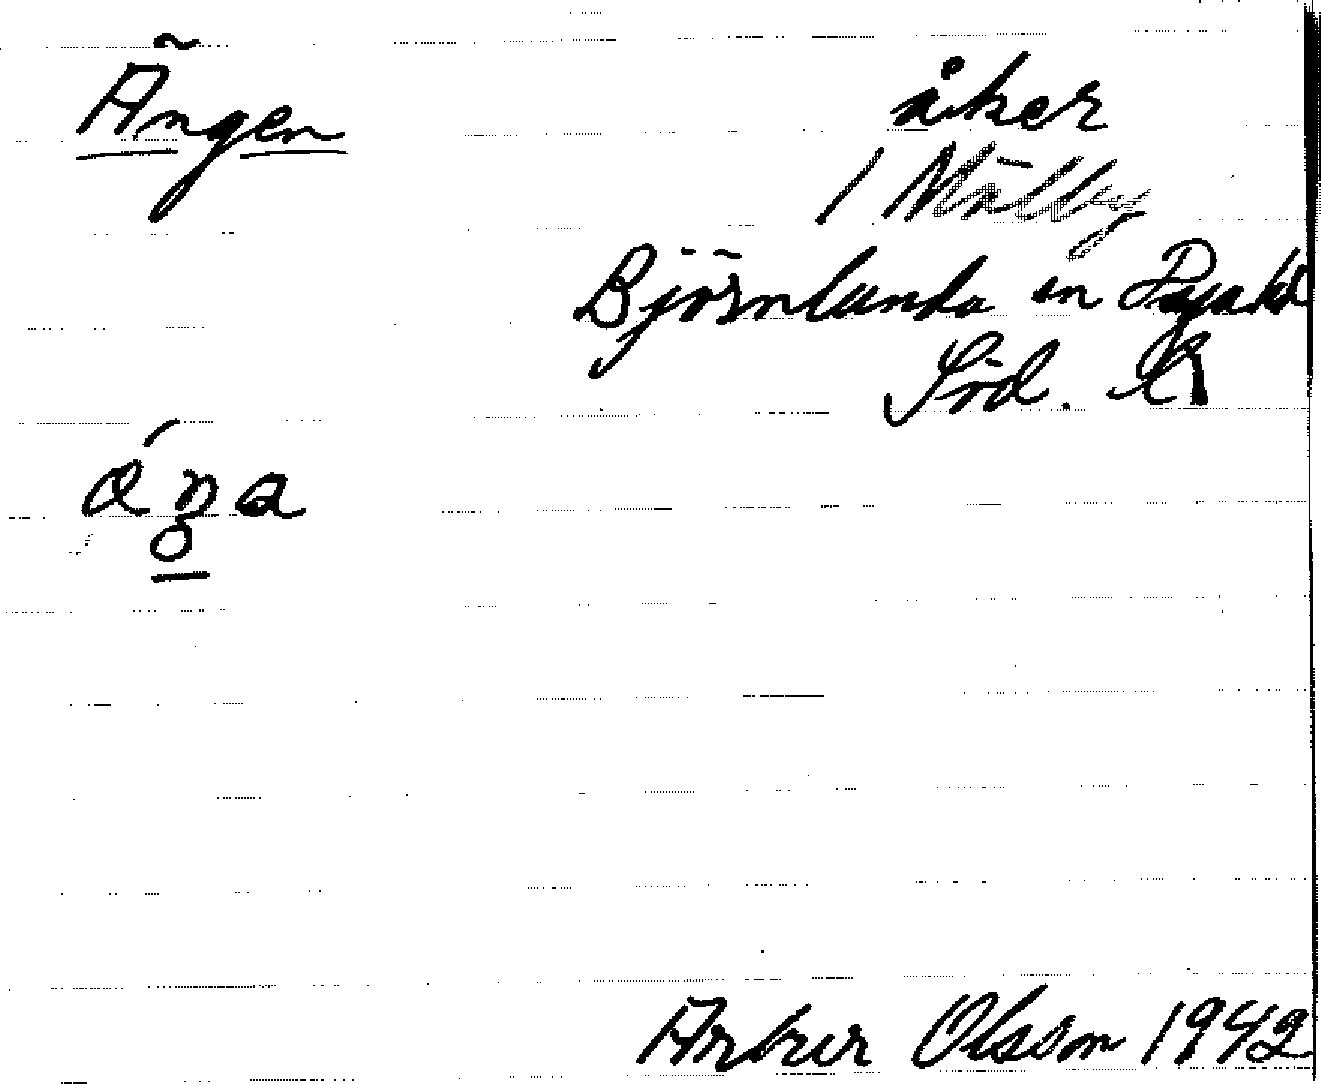 Ängen
åker
1 Mälby
Björnlunda sn Daga hd
Söd. l.
Artur Olsson 1942